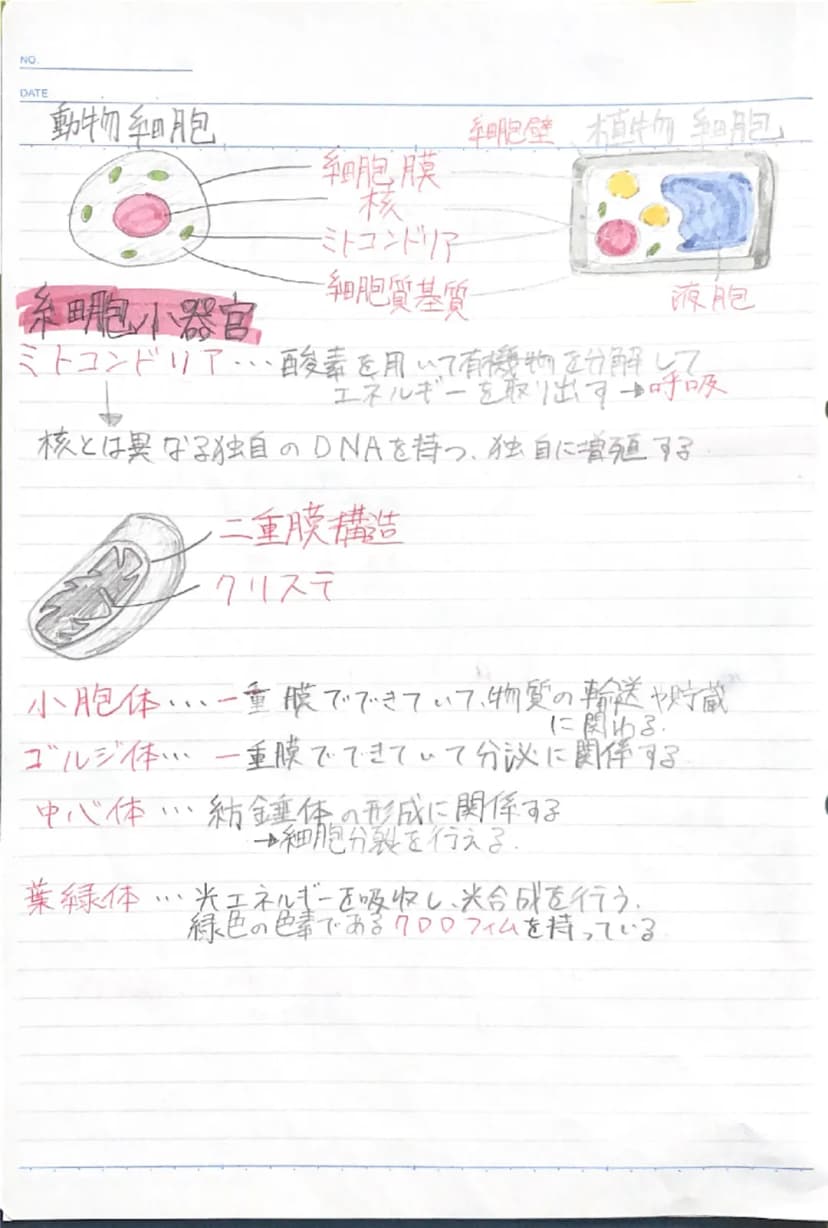 NO.
DATE
動物細胞
細胞壁 植物細胞
細胞膜
核
ミトコンドリア
細胞質基質
液胞
細胞小器官
ミトコンドリア… 酸素を用いて有機物を分解して
エネルギーを取り出す→呼吸
核とは異なる独自のDNAを持つ、独自に増殖する
二重膜構造
クリステ
小胞体… 一重膜でできていて、物質の輸送や貯蔵
に関わる.
ゴルジ体… 一重膜でできていて分泌に関係する
中心体… 紡錘体の形成に関係する
→細胞分裂を行える.
葉緑体… 光エネルギーを吸収し、光合成を行う.
緑色の色素であるクロロフィムを持っている